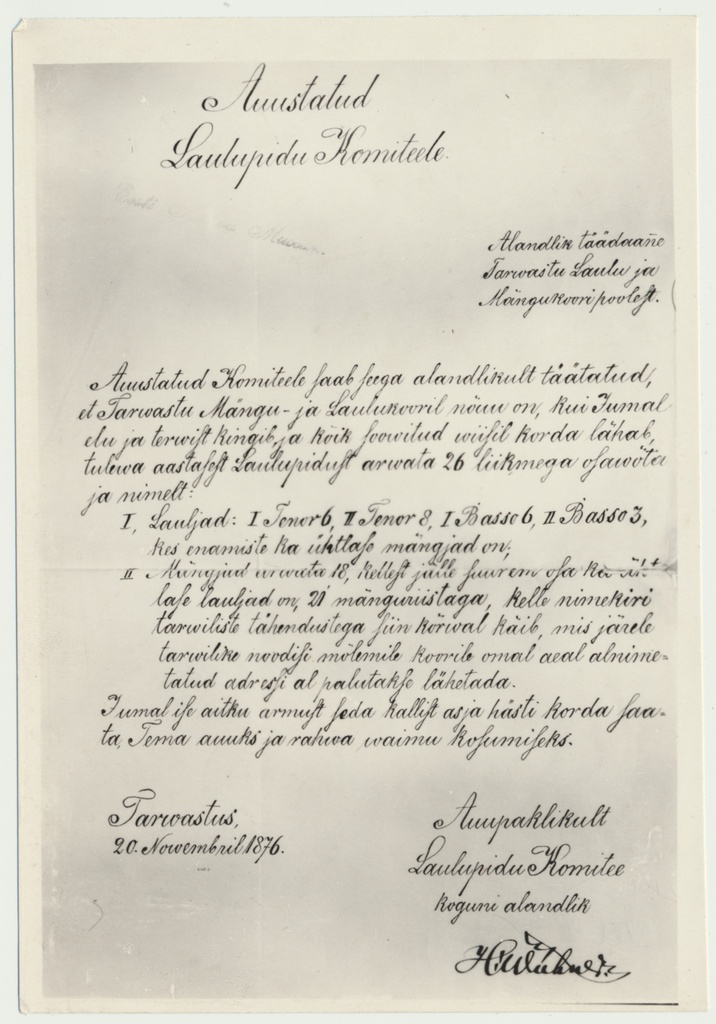 Auustatud
Laulupidu Komiteele.
Alandlik täädaañe
Tarwastu Laulu ja
Mängukoori poolest.
Auustatud Komiteele saab seega alandlikult täätatud,
et Tarwastu Mängu- ja Laulukooril nõuu on, kui Jumal
elu ja terwist kingib, ja kõik soowitud wiisil korda lähab,
tulewa aastasest Laulupidust arwata 26 liikmega osawõta
ja nimelt:
I, Lauljad: I Tenor 6, II Tenor 8, I Basso 6, II Basso 3,
kes enamiste ka ühtlase mängjad on;
II Mängjad arwata 18, kellest jälle suurem osa ka üht
lase lauljad on, 21 mänguriistaga, kelle nimekiri
tarwiliste tähendustega siin kõrwal käib, mis järele
tarwilike noodisi mõlemile koorile omal aeal alnime=
tatud adressi al palutakse lähetada.
Jumal ise aitku armust seda kallist asja hästi korda saa=
ta, Tema auuks ja rahwa waimu kosumiseks.
Tarwastus,
20. Nowembril 1876.
Auupaklikult
Laulupidu Komitee
koguni alandlik